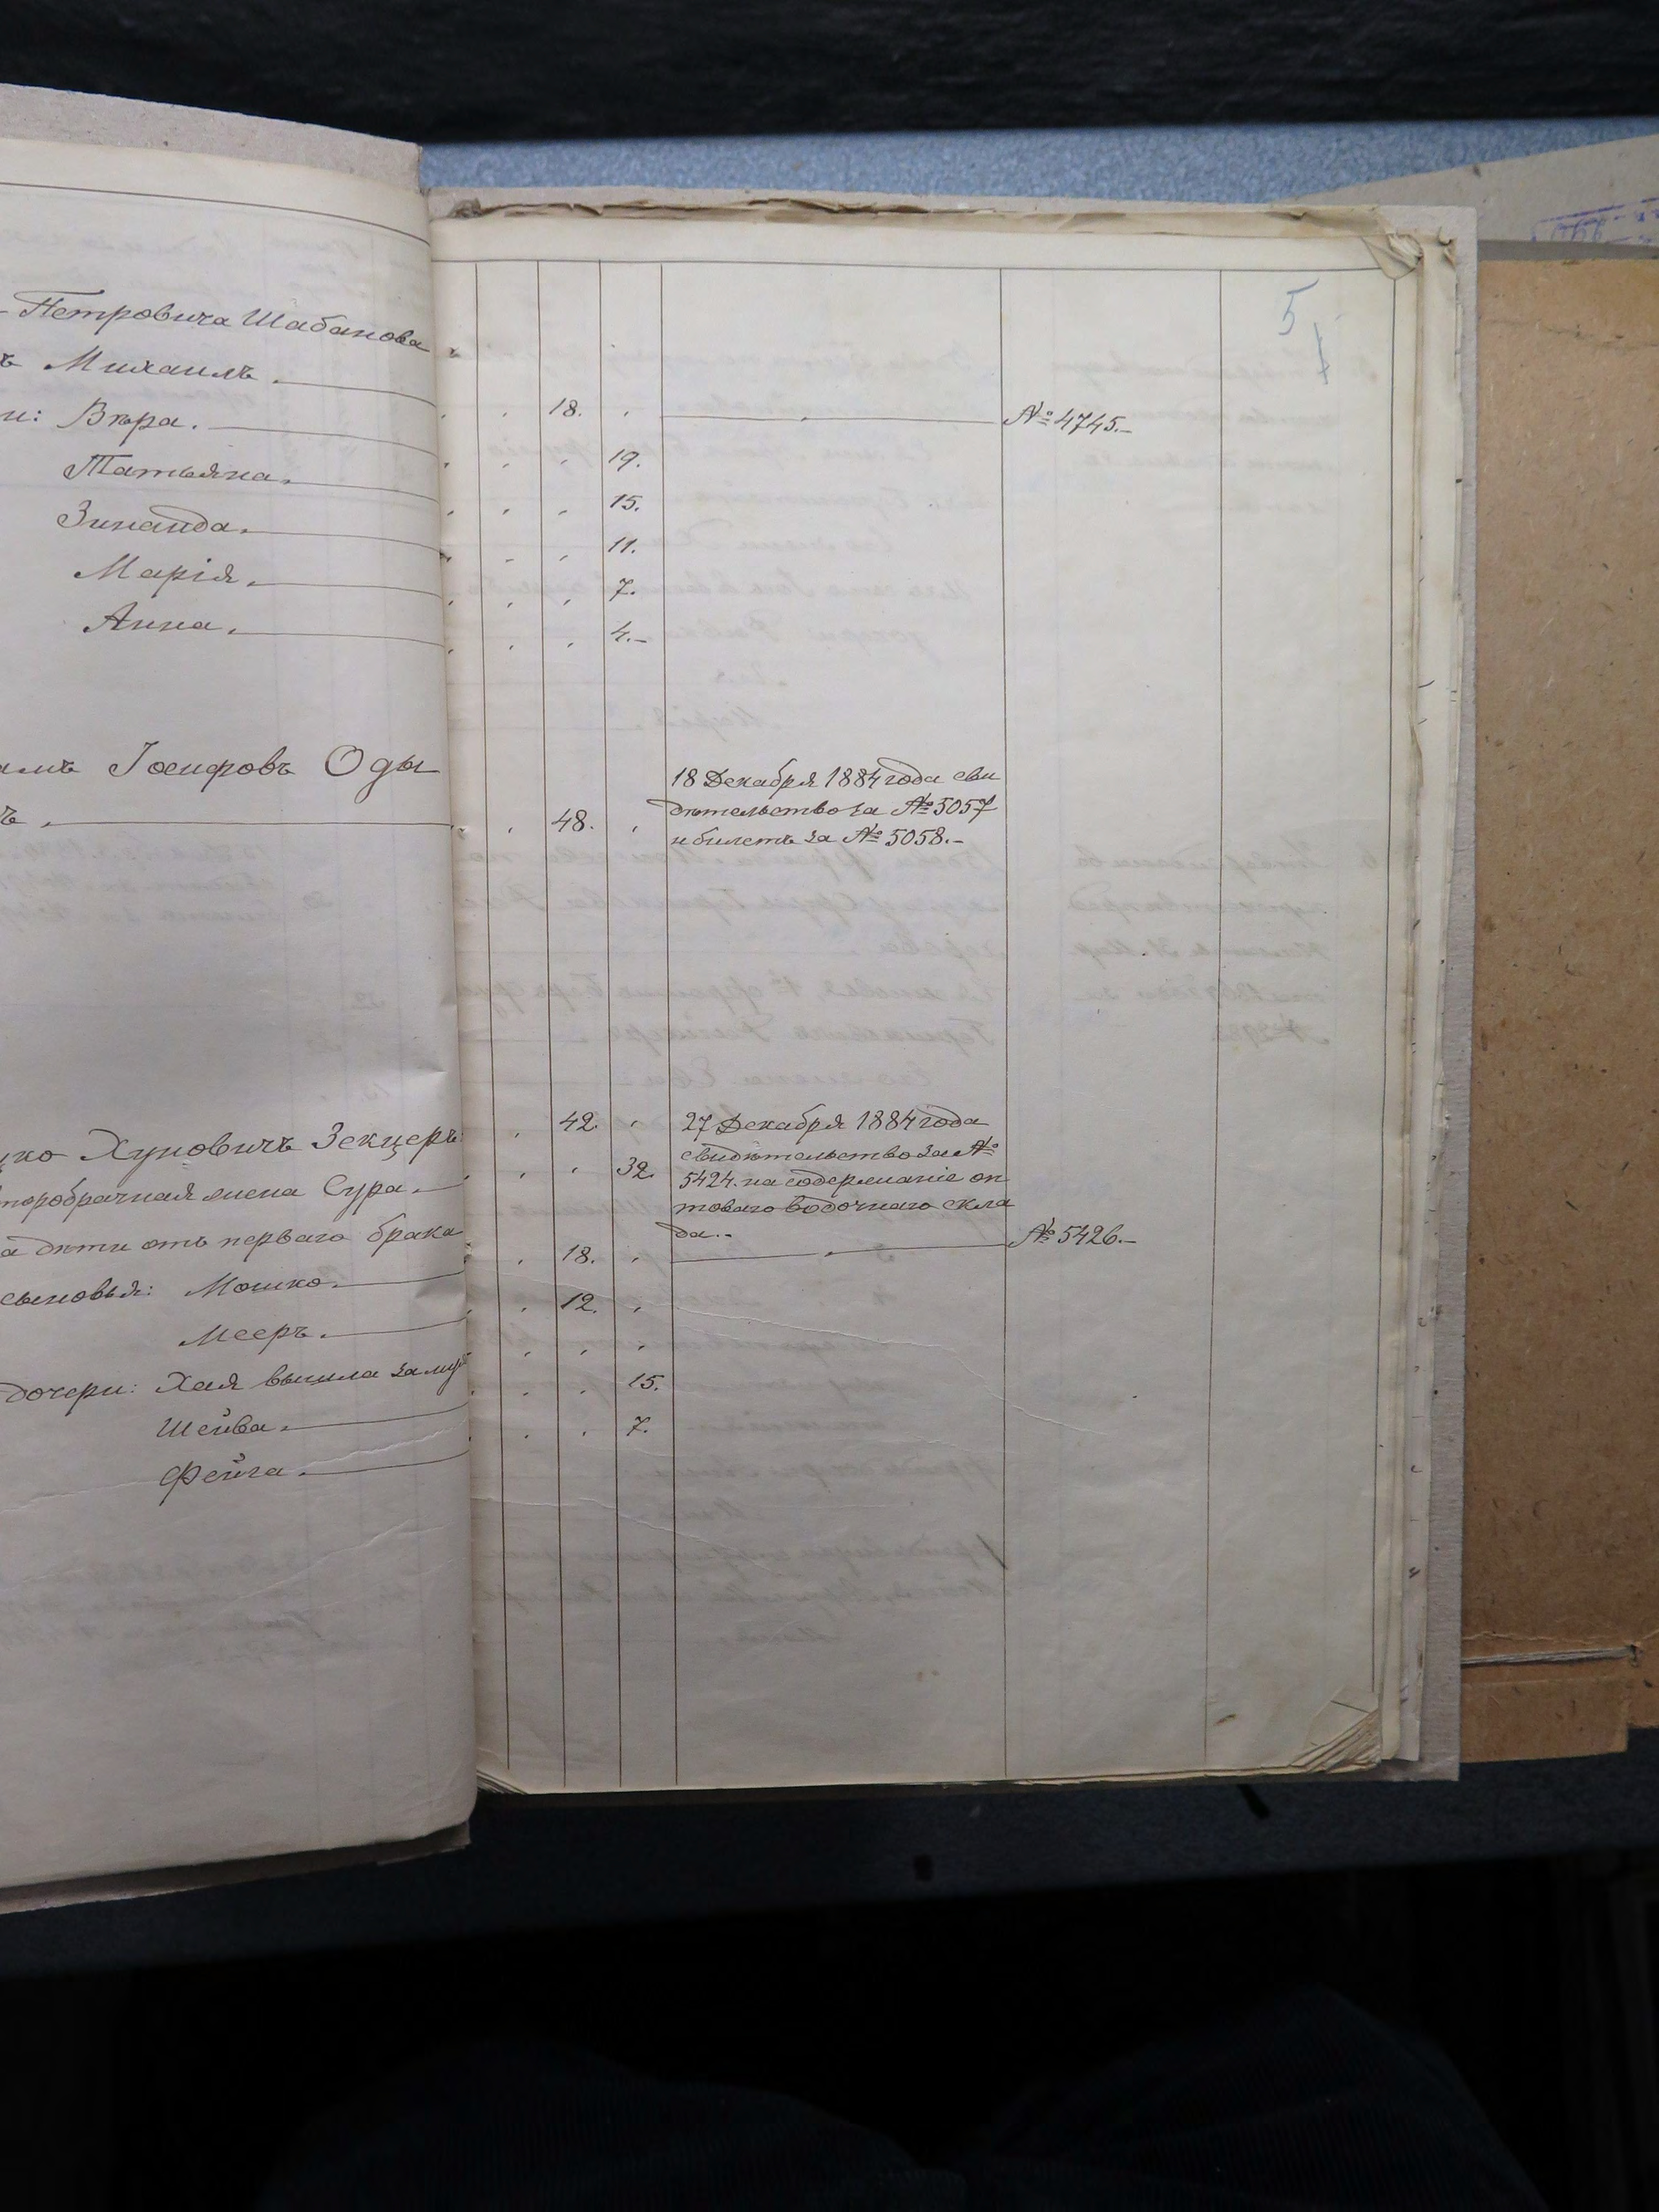 5
Петровича Шабанова
ъ Михаилъ. 18. № 4745.
и: Вѣра. 19.
Татьяна. 15.
Зинаида. 11.
Марія. 7.
Анна. 4.
амъ Іосифовъ Оды
ъ. 48.
18 Декабря 1884 года сви
дѣтельство за № 5057
и билетъ за № 5058.
ко Хуновичъ Зекцеръ 42.
торобрачная жена Сура. 32.
27 Декабря 1884 года
свидѣтельство за №
5424. на содержаніе оп
товаго водочнаго скла
да.
а дѣти отъ перваго брака
сыновья: Мошко. 18. № 5426.
Мееръ. 12.
дочери: Хая вышла замуж
Шейва. 15.
Фейга. 7.